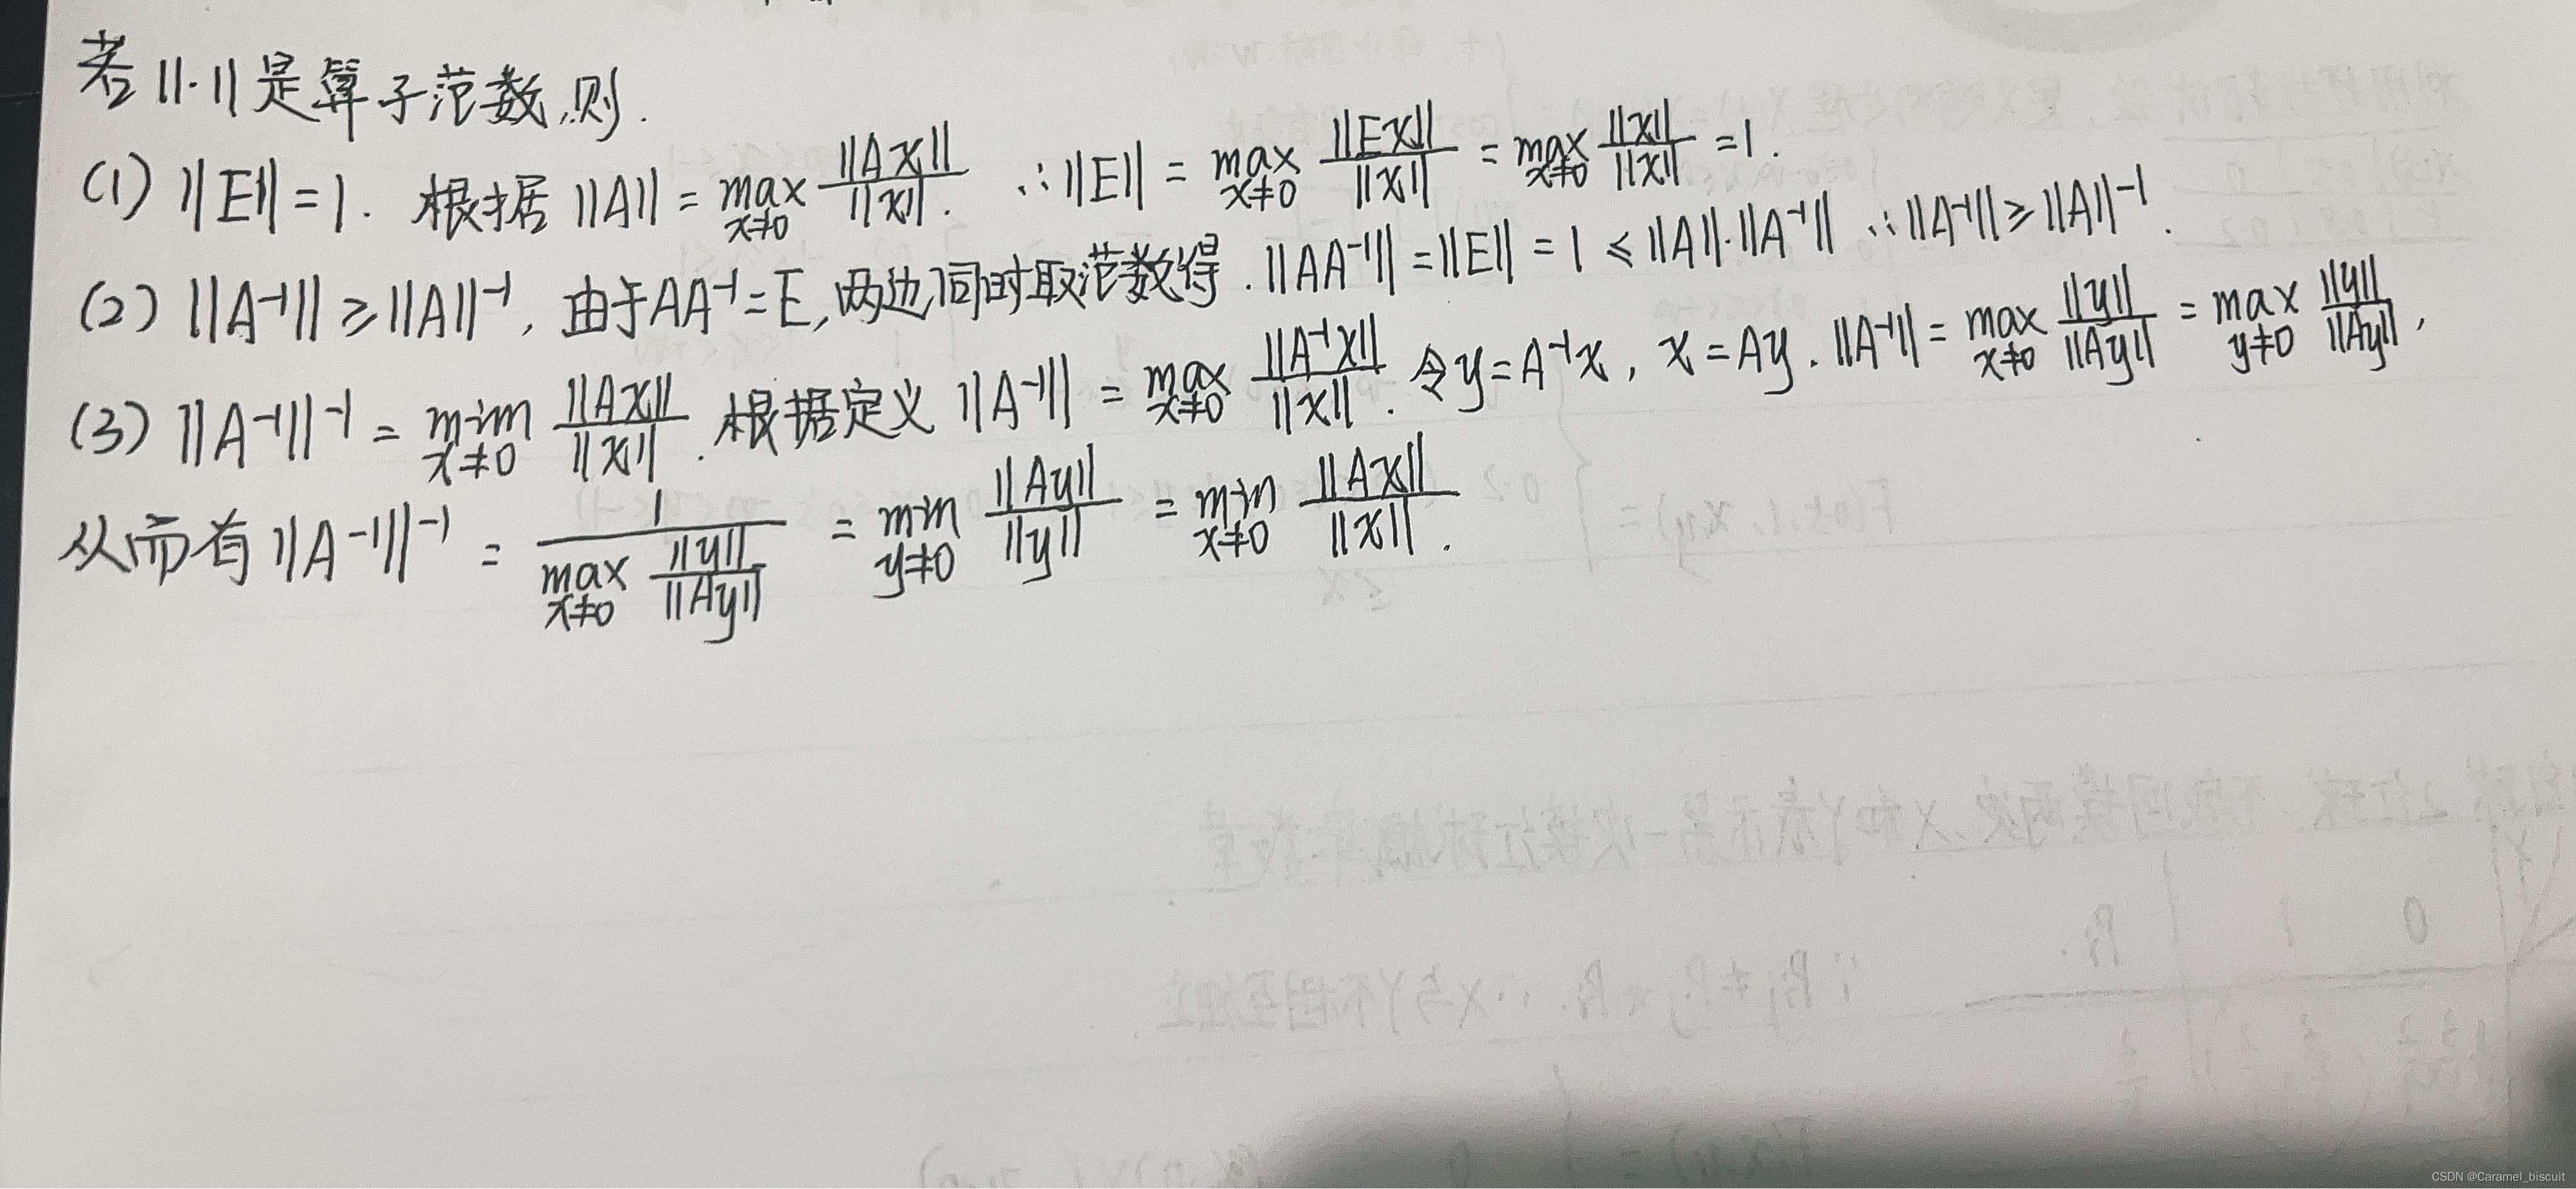 若||·||是算子范数,则.
(1) ||E||=1. 根据 ||A|| = max_{x≠0} ||Ax||/||x||. ∴||E|| = max_{x≠0} ||Ex||/||x|| = max_{x≠0} ||x||/||x|| =1.
(2) ||A⁻¹|| ≥ ||A||⁻¹, 由于AA⁻¹=E, 两边同时取范数得. ||AA⁻¹|| = ||E|| = 1 ≤ ||A||·||A⁻¹|| ∴||A⁻¹|| ≥ ||A||⁻¹.
(3) ||A⁻¹||⁻¹ = min_{x≠0} ||Ax||/||x||. 根据定义 ||A⁻¹|| = max_{x≠0} ||A⁻¹x||/||x||. 令y=A⁻¹x, x=Ay. ||A⁻¹|| = max_{x≠0} ||y||/||Ay|| = max_{y≠0} ||y||/||Ay||,
从而有 ||A⁻¹||⁻¹ = 1/(max_{x≠0} ||y||/||Ay||) = min_{y≠0} ||Ay||/||y|| = min_{x≠0} ||Ax||/||x||.
CSDN @Caramel_biscuit